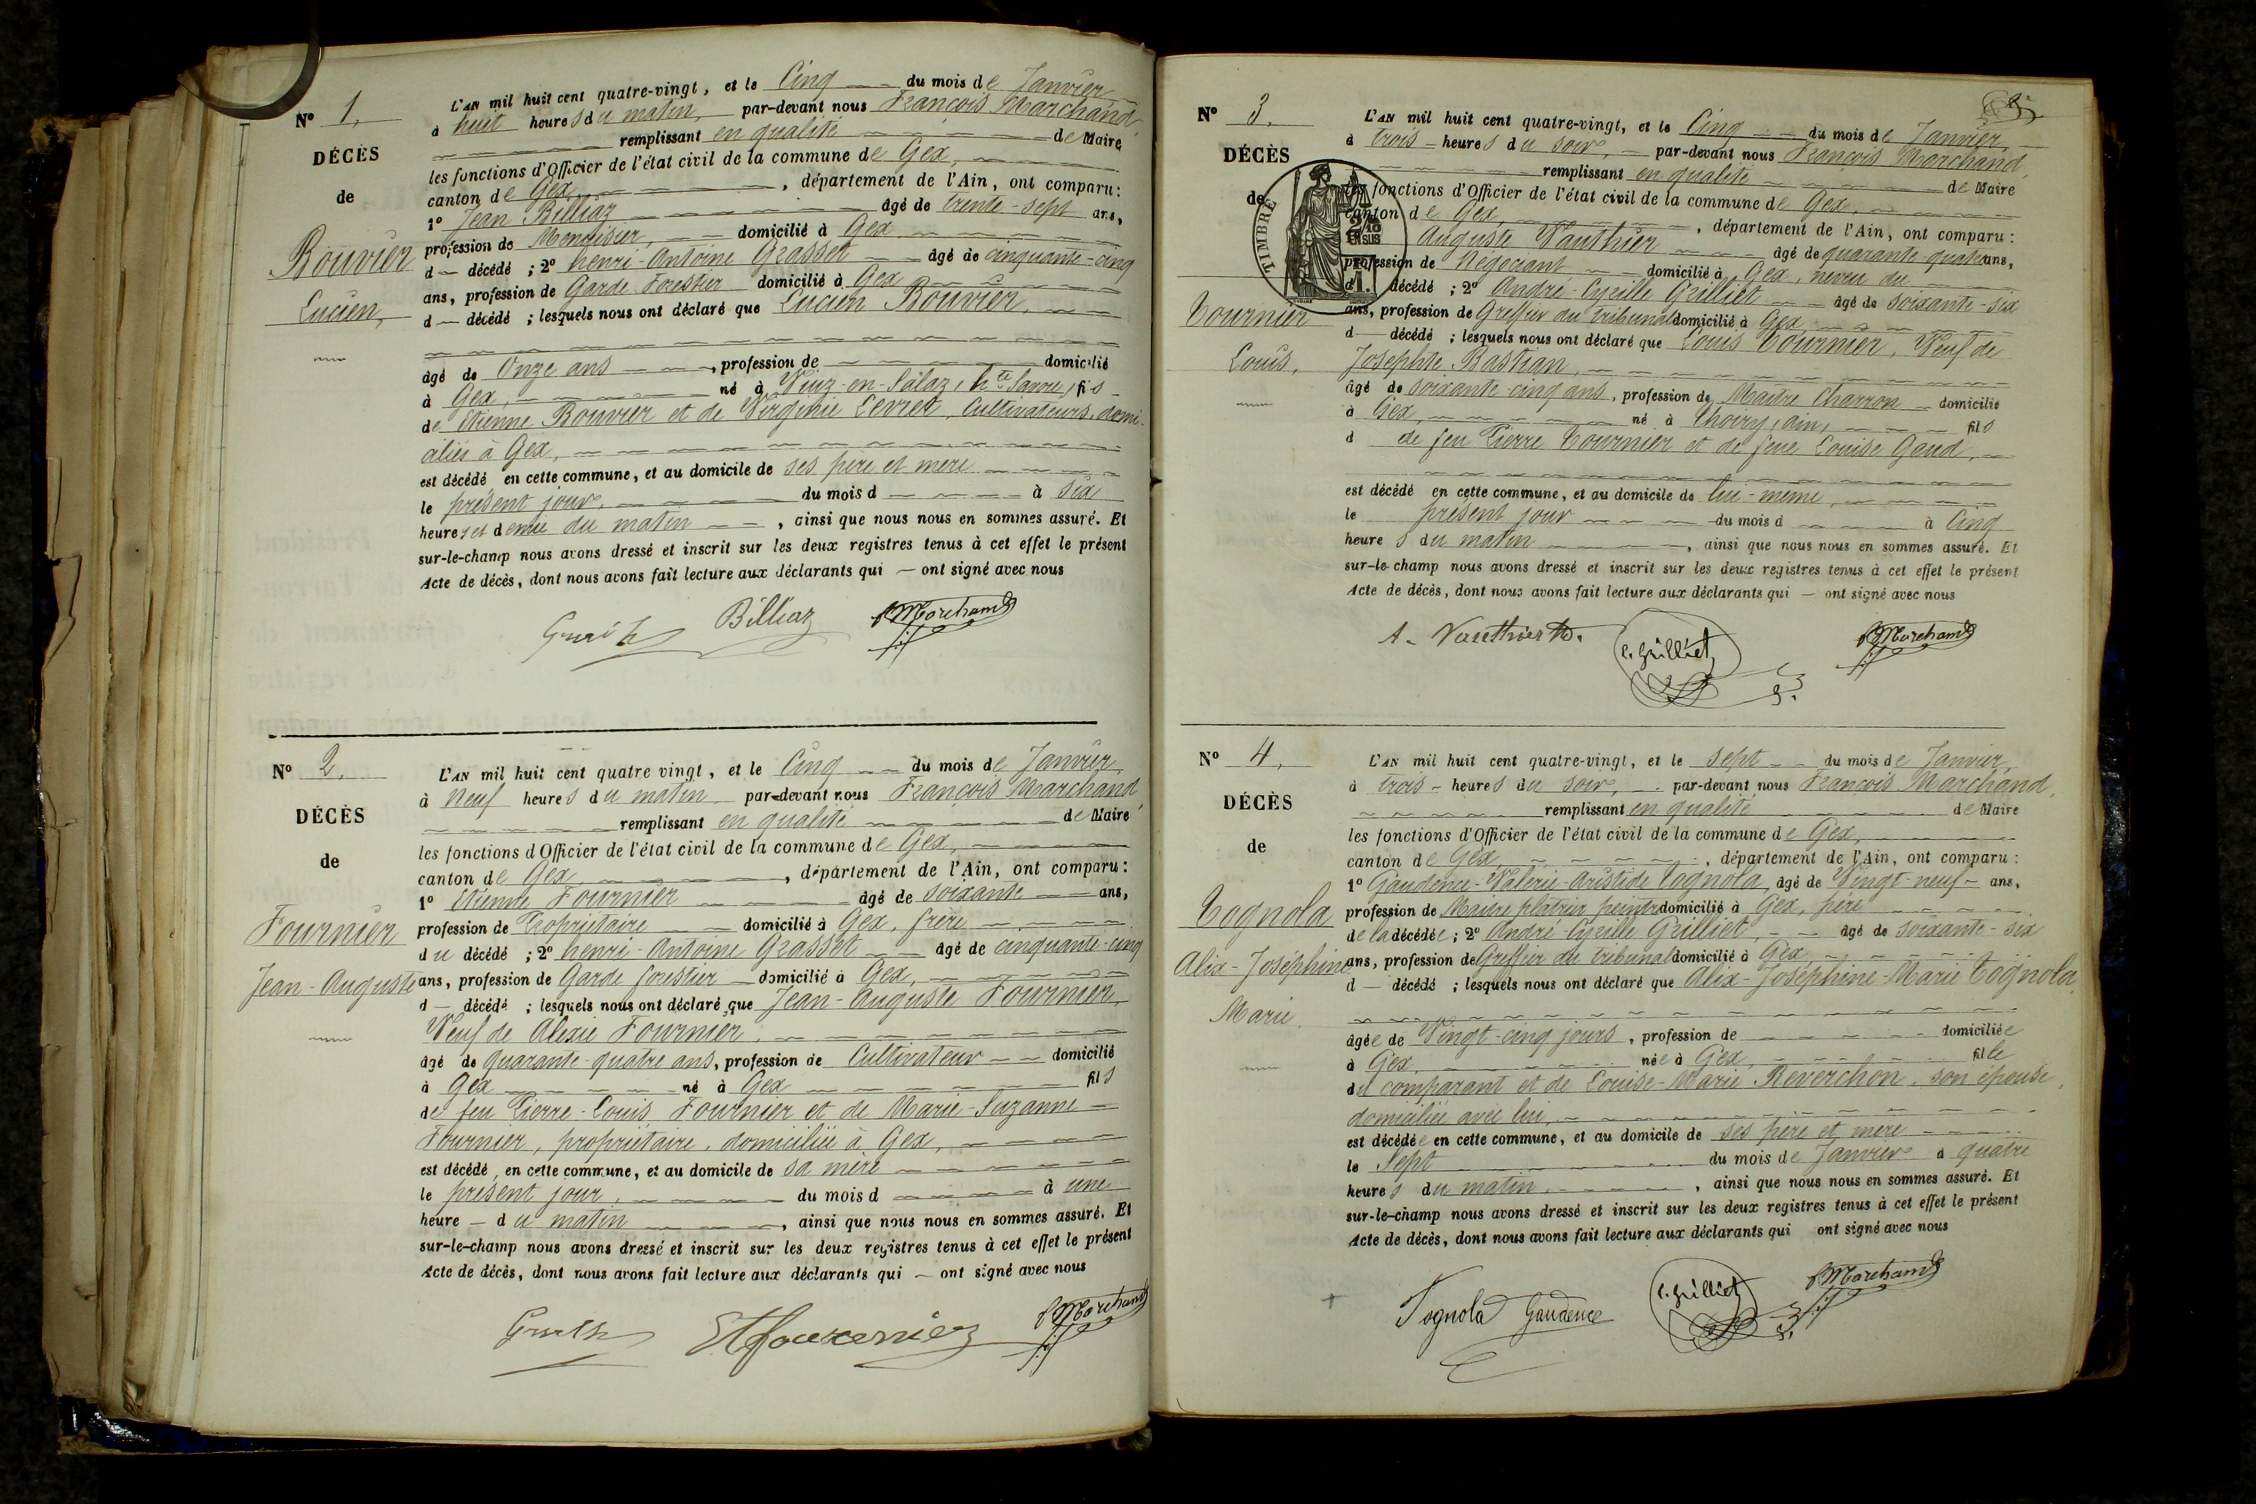 N° 1.
DÉCÈS
de
Bouvier
Lucien,
L'AN mil huit cent quatre-vingt, et le Cinq du mois de Janvier
à huit heures du matin, par-devant nous François Marchand,
remplissant en qualité de Maire
les fonctions d'Officier de l'état civil de la commune de Gex,
canton de Gex, département de l'Ain, ont comparu:
1° Jean Billiaz âgé de trente-sept ans,
profession de Menuisier, domicilié à Gex
d décédé ; 2° henri-Antoine Grasset âgé de cinquante-cinq
ans, profession de Garde Forestier domicilié à Gex
d décédé ; lesquels nous ont déclaré que Lucien Bouvier,
âgé de Onze ans, profession de domicilié
à Gex, né à Viuz-en-Sálaz, hte Savoie, fils
de Etienne Bouvier et de Virginie Levret, Cultivateurs, domi-
ciliés à Gex,
est décédé en cette commune, et au domicile de ses père et mère
le présent jour, du mois d à six
heures et demie du matin, ainsi que nous nous en sommes assuré. Et
sur-le-champ nous avons dressé et inscrit sur les deux registres tenus à cet effet le présent
Acte de décès, dont nous avons fait lecture aux déclarants qui — ont signé avec nous
Billiaz Marchand
N° 2.
DÉCÈS
de
Fournier
Jean-Auguste
L'AN mil huit cent quatre vingt, et le Cinq du mois de Janvier,
à Neuf heures du matin par-devant nous François Marchand,
remplissant en qualité de Maire
les fonctions d'Officier de l'état civil de la commune de Gex,
canton de Gex, département de l'Ain, ont comparu:
1° Etienne Fournier âgé de soixante ans,
profession de Propriétaire domicilié à Gex, frère
du décédé ; 2° henri-Antoine Grasset âgé de cinquante-cinq
ans, profession de Garde forestier domicilié à Gex,
d — décédé ; lesquels nous ont déclaré que Jean-Auguste Fournier,
Veuf de Alexie Fournier,
âgé de quarante-quatre ans, profession de Cultivateur domicilié
à Gex né à Gex fils
de feu Pierre-Louis Fournier et de Marie-Suzanne
Fournier, propriétaire, domiciliée à Gex,
est décédé en cette commune, et au domicile de sa mère
le présent jour, du mois d à une
heure — du matin, ainsi que nous nous en sommes assuré. Et
sur-le-champ nous avons dressé et inscrit sur les deux registres tenus à cet effet le présent
Acte de décès, dont nous avons fait lecture aux déclarants qui — ont signé avec nous
Fournier Marchand
N° 3.
DÉCÈS
de
TIMBRE
2/10 EN SUS
Tournier
Louis.
L'AN mil huit cent quatre-vingt, et le Cinq du mois de Janvier,
à trois heures du soir, par-devant nous François Marchand,
remplissant en qualité de Maire
les fonctions d'Officier de l'état civil de la commune de Gex,
canton de Gex, département de l'Ain, ont comparu:
Auguste Vauthier âgé de quarante-quatre ans,
profession de Négociant domicilié à Gex, neveu du
décédé ; 2° André-Cyrille Grilliet âgé de soixante-six
ans, profession de Greffier du tribunal domicilié à Gex
d décédé ; lesquels nous ont déclaré que Louis Tournier, Veuf de
Josephte Bastian,
âgé de soixante-cinq ans, profession de Maître Charron domicilié
à Gex, né à Thoiry, ain, fils
d de feu Pierre Tournier et de feue Louise Gaud,
est décédé en cette commune, et au domicile de lui-même,
le présent jour du mois d à Cinq
heures du matin, ainsi que nous nous en sommes assuré. Et
sur-le-champ nous avons dressé et inscrit sur les deux registres tenus à cet effet le présent
Acte de décès, dont nous avons fait lecture aux déclarants qui — ont signé avec nous
A. Vauthier C. Grilliet Marchand
N° 4.
DÉCÈS
de
Tognola
Alix-Joséphine
Marie.
L'AN mil huit cent quatre-vingt, et le sept du mois de Janvier,
à trois heures du soir, par-devant nous François Marchand,
remplissant en qualité de Maire
les fonctions d'Officier de l'état civil de la commune de Gex,
canton de Gex, département de l'Ain, ont comparu:
1° Gaudence-Valérie-Aristide Tognola, âgé de Vingt-neuf ans,
profession de Maître plâtrier peintre domicilié à Gex, père
de la décédée ; 2° André-Cyrille Grilliet, âgé de soixante-six
ans, profession de Greffier du tribunal domicilié à Gex,
d — décédé ; lesquels nous ont déclaré que Alix-Joséphine-Marie Tognola,
âgée de Vingt-cinq jours, profession de domiciliée
à Gex, née à Gex, fille
du comparant et de Louise-Marie Reverchon, son épouse,
domiciliée avec lui,
est décédée en cette commune, et au domicile de ses père et mère
le Sept du mois de Janvier à quatre
heures du matin, ainsi que nous nous en sommes assuré. Et
sur-le-champ nous avons dressé et inscrit sur les deux registres tenus à cet effet le présent
Acte de décès, dont nous avons fait lecture aux déclarants qui ont signé avec nous
Tognola Gaudence C. Grilliet Marchand